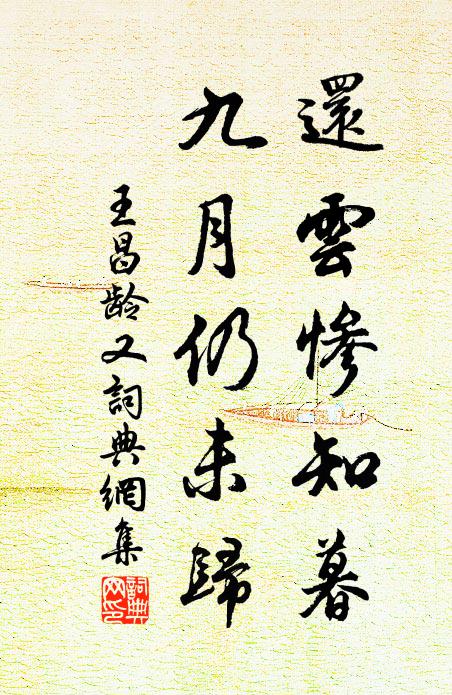 還雲慘知暮
九月仍未歸
王昌龄又詞典網集
詞典网印